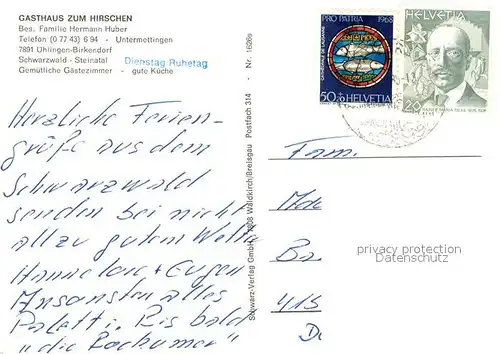 GASTHAUS ZUM HIRSCHEN
Bes. Familie Hermann Huber
Telefon (0 77 43) 6 94 - Untermettingen
7891 Ühlingen-Birkendorf
Schwarzwald - Steinatal
Gemütliche Gästezimmer - gute Küche
Dienstag Ruhetag
Herzliche Ferien-
grüße aus dem
Schwarzwald
senden bei nicht
allzu gutem Wetter
Hannelore + Eugen
Ansonsten alles
Palatti. Bis bald
"die Bochumer"
Schwarz-Verlag GmbH, 7808 Waldkirch/Breisgau Postfach 314 · Nr. 1626s
PRO PATRIA 1968
CATHÉDRALE DE LAUSANNE
50+20 HELVETIA
HELVETIA
20
Fam.
Br
415
privacy protection
Datenschutz